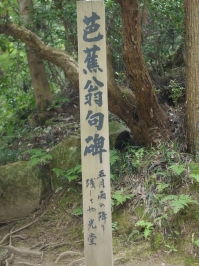 芭蕉翁句碑
五月雨の降り
残してや光堂